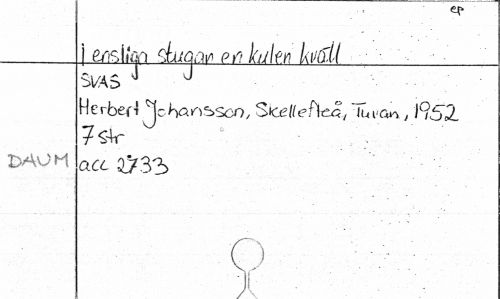 ep
I ensliga stugan en kulen kväll
SVAS
Herbert Johansson, Skellefteå, Tuvan, 1952
7 str
DAUM acc 2733